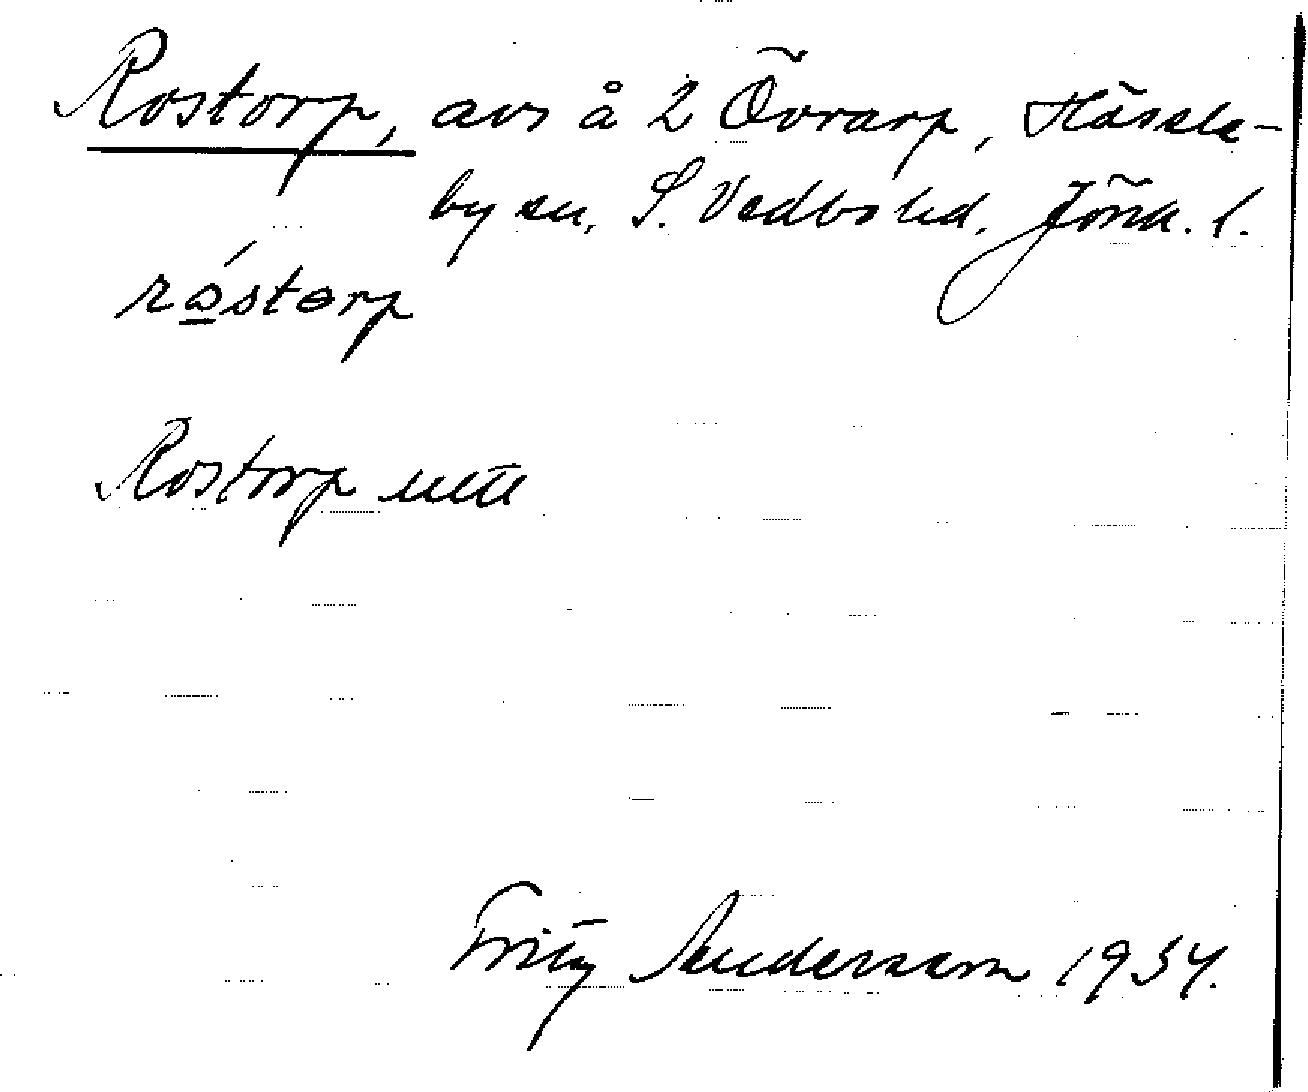 Rostorp, avs å 2 Övrarp, Hässle-
by sn, S. Vedbo hd. Jönk. l.
Rostorp
Fritz Andersson 1934.